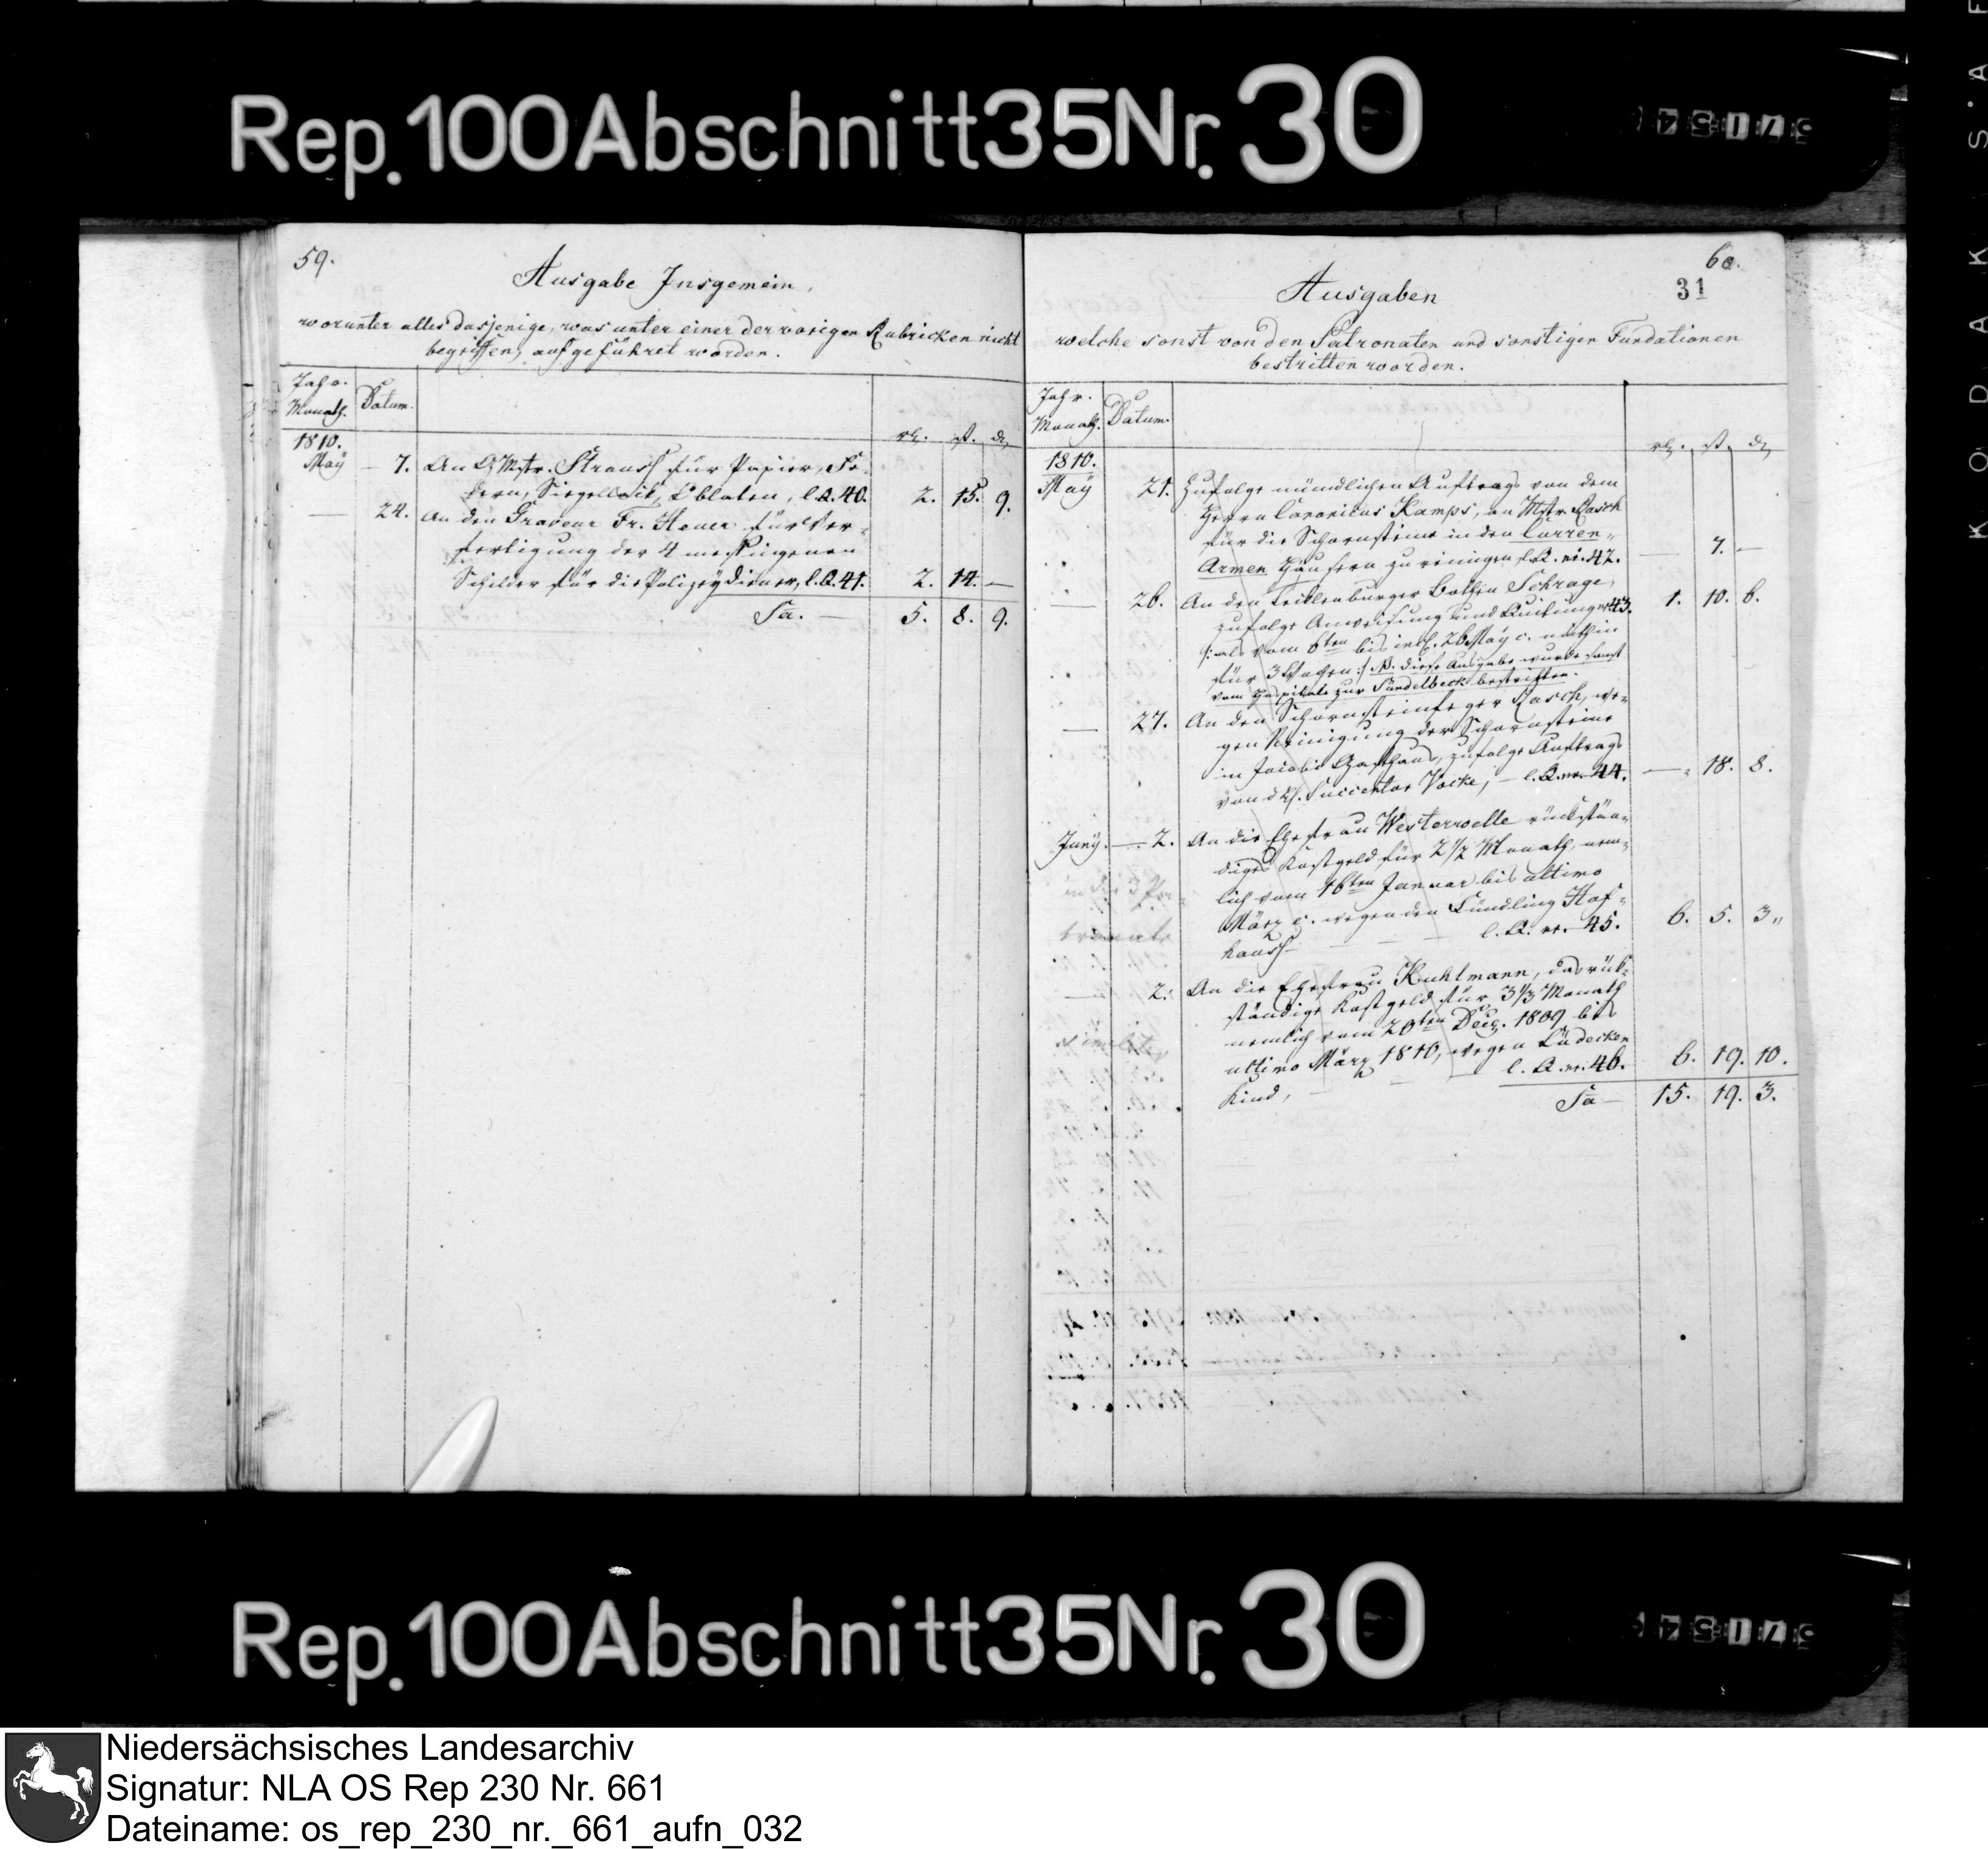 Rep. 100 Abschnitt 35 Nr. 30
59.
Ausgabe Insgemein,
worunter alles dasjenige, was unter einer der vorigen Rubricken nicht
begriffen, aufgeführet worden.
Jahr.
Monath. Datum.
rh. ß. d.
1810.
May 7. An Mstr. Strauss für Papier, Fe-
dern, Siegellack, Oblaten, l. Q. 40. 2. 15. 9.
— 24. An den Graveur Fr. Hover für Ver-
fertigung der 4 messingenen
Schilder für die Polizeydiener, l. Q. 41. 2. 14. —
Sa. — 5. 8. 9.
60.
31
Ausgaben
welche sonst von den Patronaten und sonstigen Fundationen
bestritten worden.
Jahr.
Monath. Datum.
rh. ß. d.
1810.
May 21. Zufolge mündlichen Auftrags von dem
Herrn Canonicus Kamps, an Mstr. Rasch
für die Schornsteine in den Curren-
Armen Häusern zu reinigen l. Q. nr. 42. — 7. —
— 26. An den Tecklenburger Bothen Schrage,
zufolge Anweisung und Quitung nr. 43. 1. 10. 6.
/: als vom 6ten bis incl. 26 May c. mithin
für 3 Wochen :/ NB. diese Ausgabe wurde sonst
vom Hospitale zur Sündelbeck bestritten.
— 27. An den Schornsteinfeger Rasch, we-
gen Reinigung der Schornsteine
im Jacobi Gasthaus, zufolge Auftrags
von d H. Succentor Vocke, — l. Q. nr. 44. — 18. 8.
Juny. — 2. An die Ehefrau Westerwelle rückstän-
diges Kostgeld für 2 1/2 Monath, nem-
lich vom 16ten Januar bis ultimo
März c. wegen den Fündling Hof-
hauss — l. Q. nr. 45. 6. 5. 3
— 2. An die Ehefrau Kuhlmann, das rük-
ständige Kostgeld für 3 1/3 Monath
nemlich vom 20ten Dec. 1809 bis
ultimo März 1810, wegen Lüdecken
Kind, — l. Q. nr. 46. 6. 19. 10.
Sa — 15. 19. 3.
Rep. 100 Abschnitt 35 Nr. 30
KODAK
Niedersächsisches Landesarchiv
Signatur: NLA OS Rep 230 Nr. 661
Dateiname: os_rep_230_nr._661_aufn_032